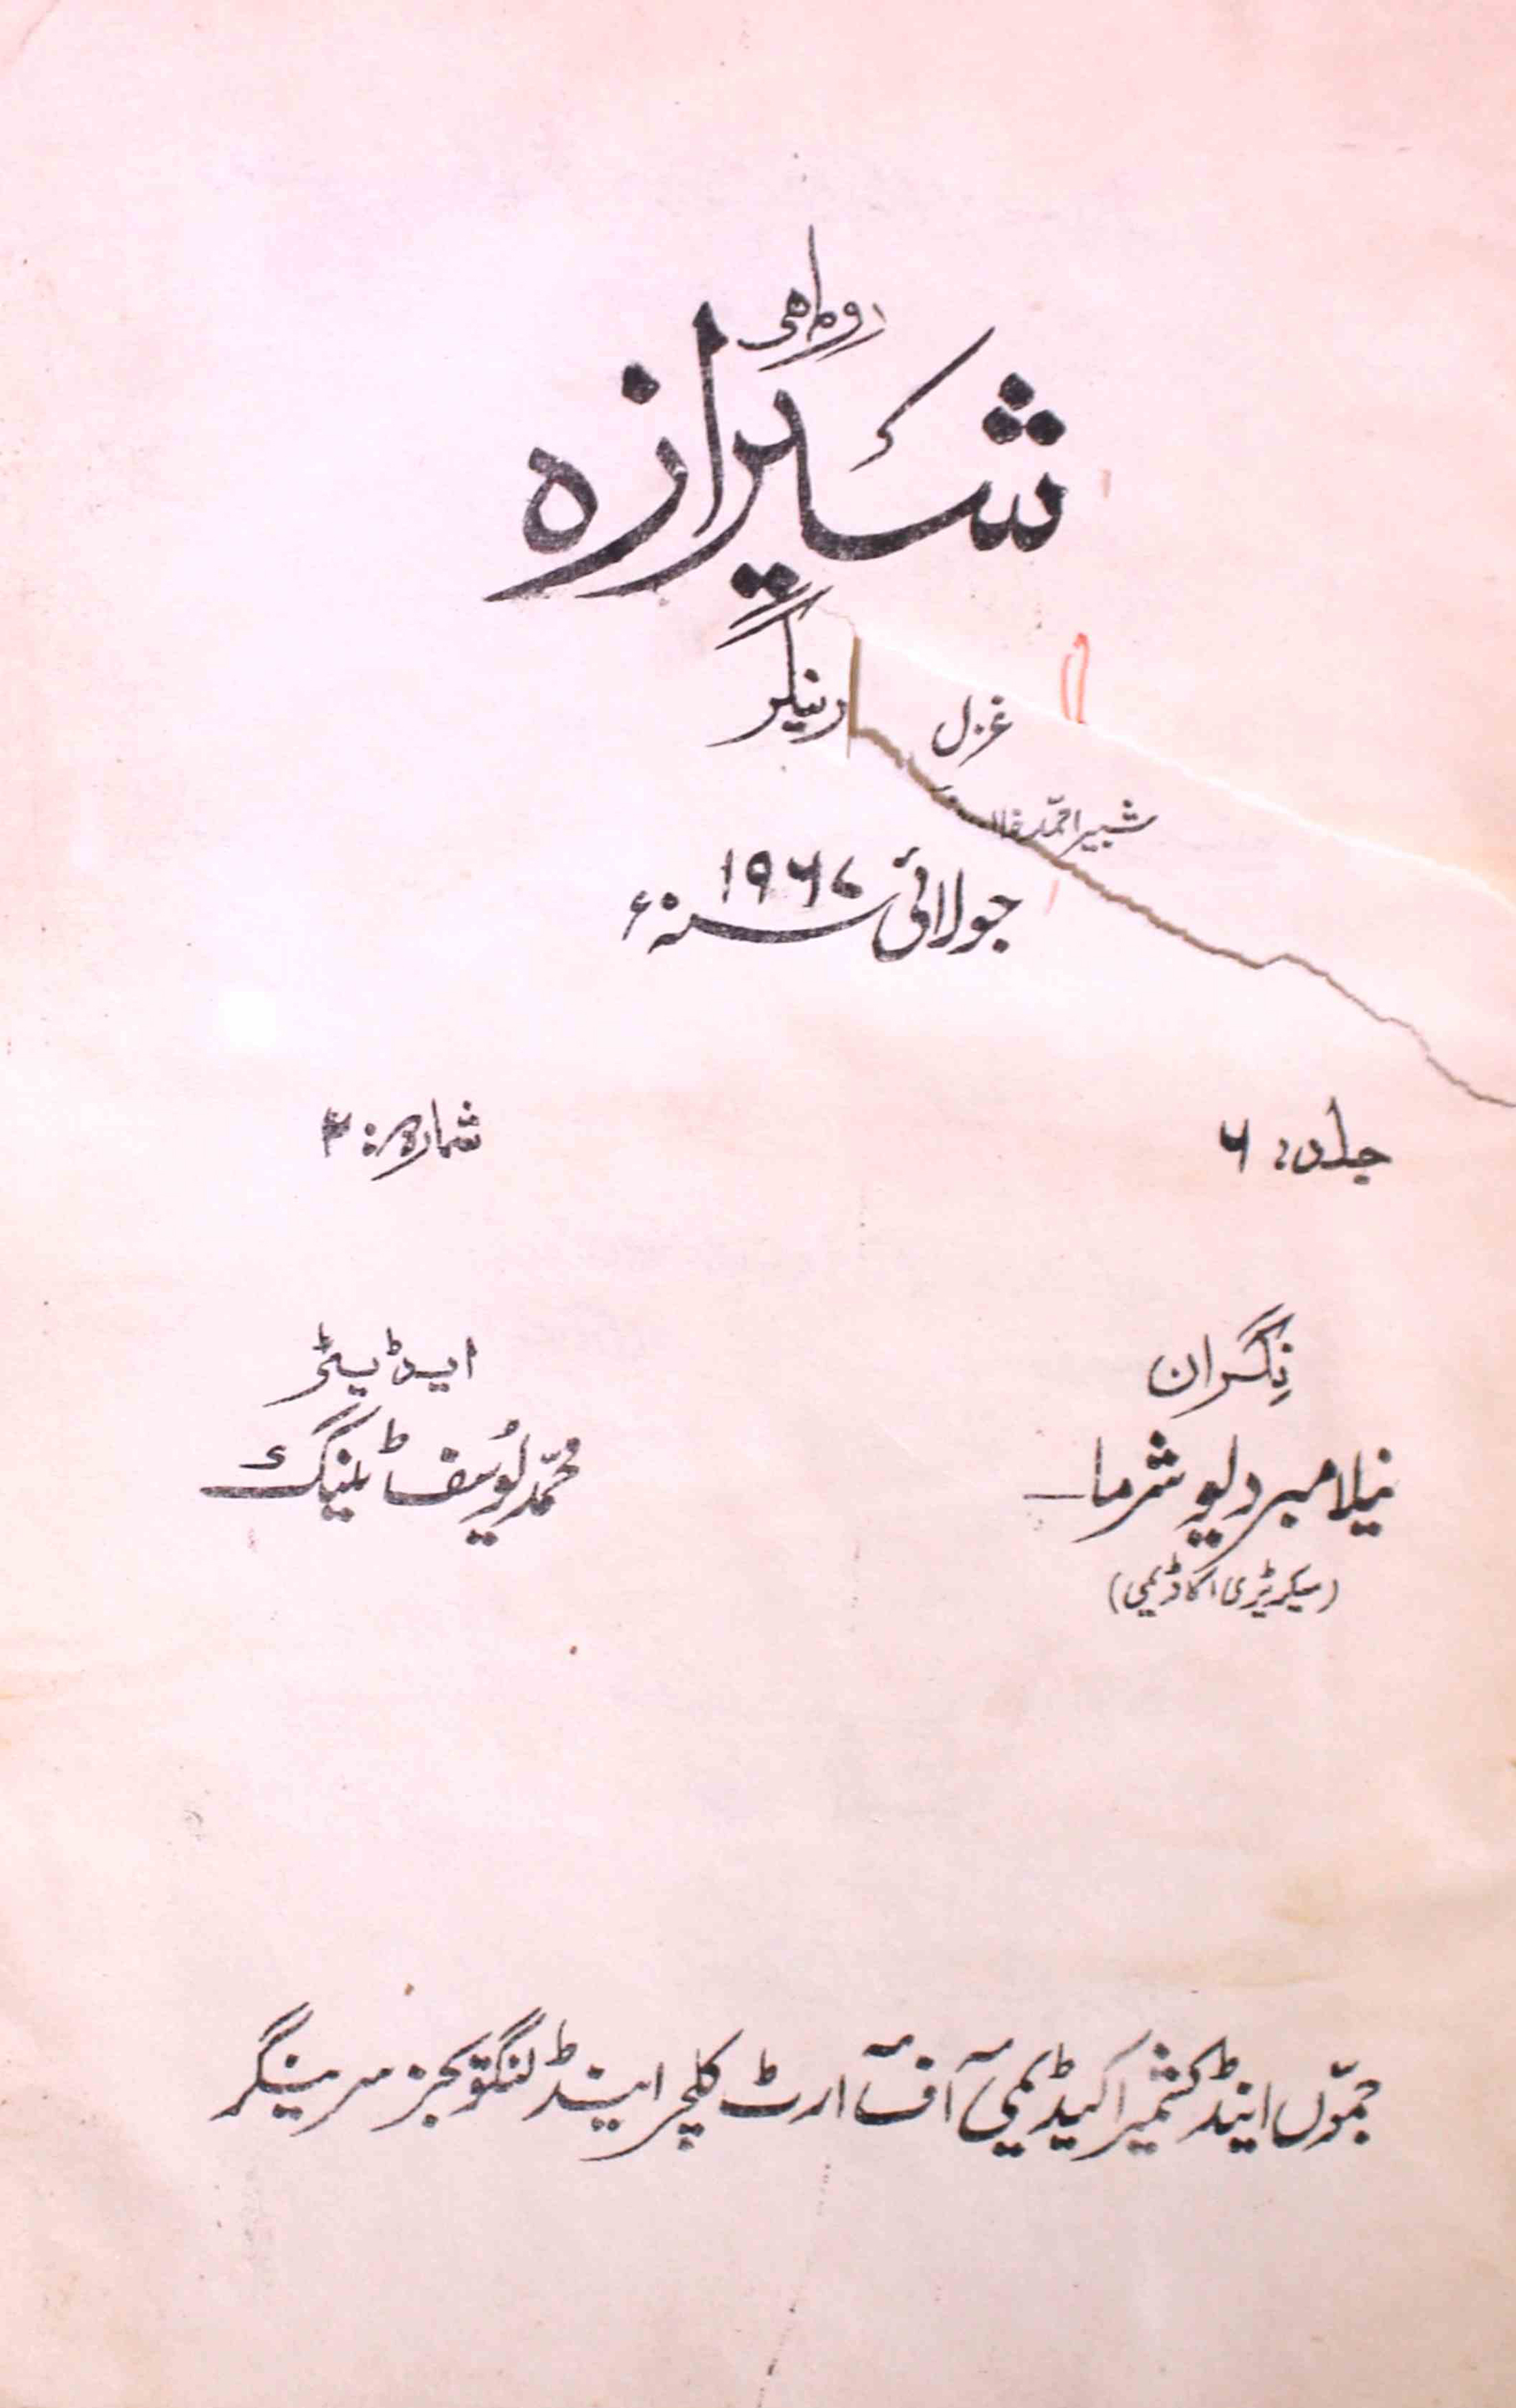 دو ماہی
شیرازہ
رینگر
غزل
شبیر احمد
جولائی ۱۹۶۷ سنہء
جلد: ۶
شمارہ:
نِگران
نیلامبر دیو شرما
(سیکریٹری اکاڈیمی)
ایڈیٹر
محمّد یُوسف ٹینگ
جمّوں اینڈ کشمیر اکیڈیمی آف آرٹ کلچر اینڈ لنگویجز سرینگر